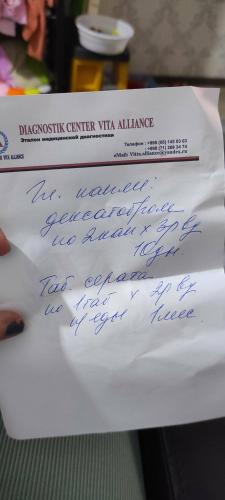 DIAGNOSTIK CENTER VITA ALLIANCE
Эталон медицинской диагностики
Телефон : +998 (65) 145 03 03
+998 (71) 269 34 74
eMail: Vitta.alliance@yandex.ru
R VITA ALLIANCE
Гл. капли:
дексатобром
по 2кап х 3р вд
10дн.
Таб. серата
по 1таб х 2р вд
п/еды 1мес.